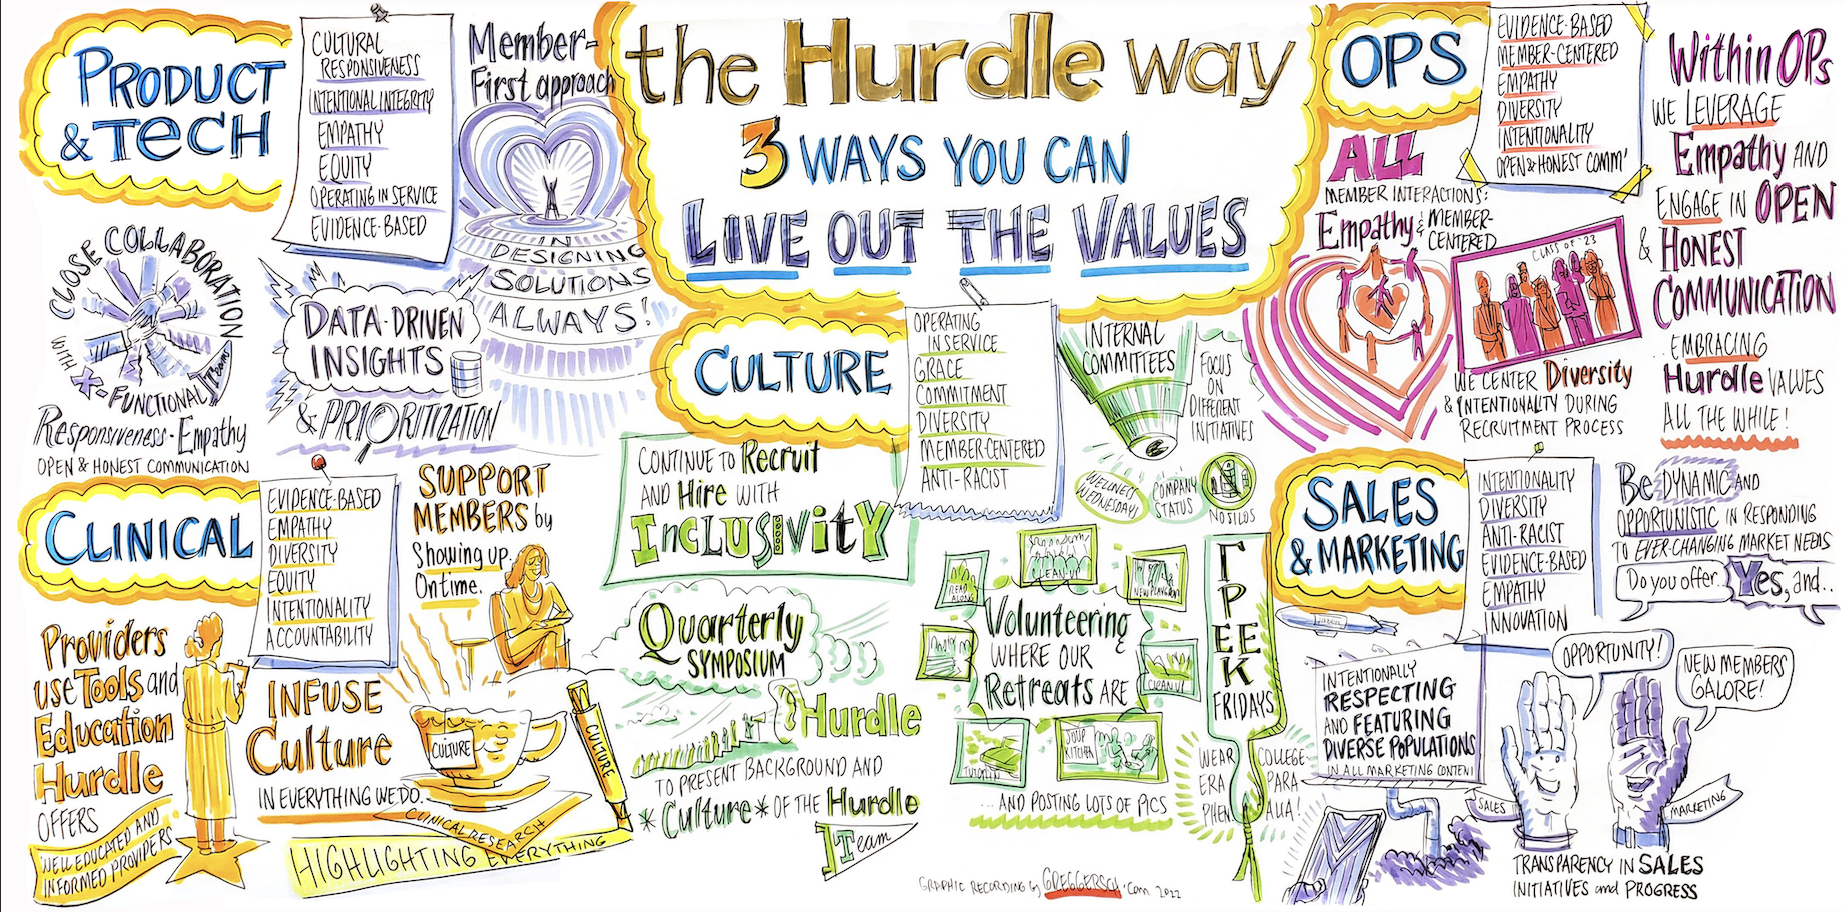 the Hurdle way
3 WAYS YOU CAN
LIVE OUT THE VALUES
PRODUCT
& TECH
CULTURAL
RESPONSIVENESS
INTENTIONAL INTEGRITY
EMPATHY
EQUITY
OPERATING IN SERVICE
EVIDENCE-BASED
Member-
First approach
IN
DESIGNING
SOLUTIONS
ALWAYS!
CLOSE COLLABORATION
WITH
X-FUNCTIONAL TEAM
Responsiveness - Empathy
OPEN & HONEST COMMUNICATION
DATA-DRIVEN
INSIGHTS
& PRIORITIZATION
CLINICAL
EVIDENCE-BASED
EMPATHY
DIVERSITY
EQUITY
INTENTIONALITY
ACCOUNTABILITY
SUPPORT
MEMBERS by
Showing up.
On time.
Providers
use Tools and
Education
Hurdle
OFFERS
WELL EDUCATED AND
INFORMED PROVIDERS
INFUSE
Culture
IN EVERYTHING WE DO.
CULTURE
CULTURE
CLINICAL RESEARCH
HIGHLIGHTING EVERYTHING
CULTURE
OPERATING
IN SERVICE
GRACE
COMMITMENT
DIVERSITY
MEMBER-CENTERED
ANTI-RACIST
INTERNAL
COMMITTEES
FOCUS
ON
DIFFERENT
INITIATIVES
WELLNESS
WEDNESDAY!
COMPANY
STATUS
NO SILOS
CONTINUE TO Recruit
AND Hire WITH
INCLUSIVITY
Quarterly
SYMPOSIUM
Hurdle
TO PRESENT BACKGROUND AND
*Culture* OF THE Hurdle
Team
CLEAN-UP
READ
ALONG
Volunteering
WHERE OUR
Retreats ARE
CLEAN UP
SOUP
KITCHEN
...AND POSTING LOTS OF PICS
GREEK
FRIDAYS
WEAR
PARA
COLLEGE
PHERN
ALIA!
OPS
EVIDENCE-BASED
MEMBER-CENTERED
EMPATHY
DIVERSITY
INTENTIONALITY
OPEN & HONEST COMM'
ALL
MEMBER INTERACTIONS:
Empathy & MEMBER-
CENTERED
CLASS OF '23
WE CENTER Diversity
& INTENTIONALITY DURING
RECRUITMENT PROCESS
Within OPs
WE LEVERAGE
Empathy AND
ENGAGE IN OPEN
& HONEST
COMMUNICATION
...EMBRACING
Hurdle VALUES
ALL THE WHILE!
SALES
& MARKETING
INTENTIONALITY
DIVERSITY
ANTI-RACIST
EVIDENCE-BASED
EMPATHY
INNOVATION
Be DYNAMIC AND
OPPORTUNISTIC IN RESPONDING
TO EVER-CHANGING MARKET NEEDS
Do you offer..
Yes, and...
INTENTIONALLY
RESPECTING
AND FEATURING
DIVERSE POPULATIONS
IN ALL MARKETING CONTENT
OPPORTUNITY!
NEW MEMBERS
GALORE!
SALES
MARKETING
TRANSPARENCY IN SALES
INITIATIVES and PROGRESS
GRAPHIC RECORDING by GREGGERSCH.com 2022